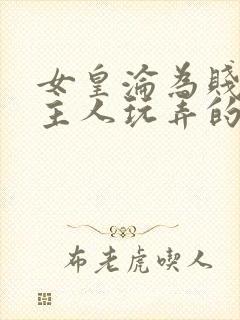 女皇淪為賤
主人玩弄的
布老虎喫人